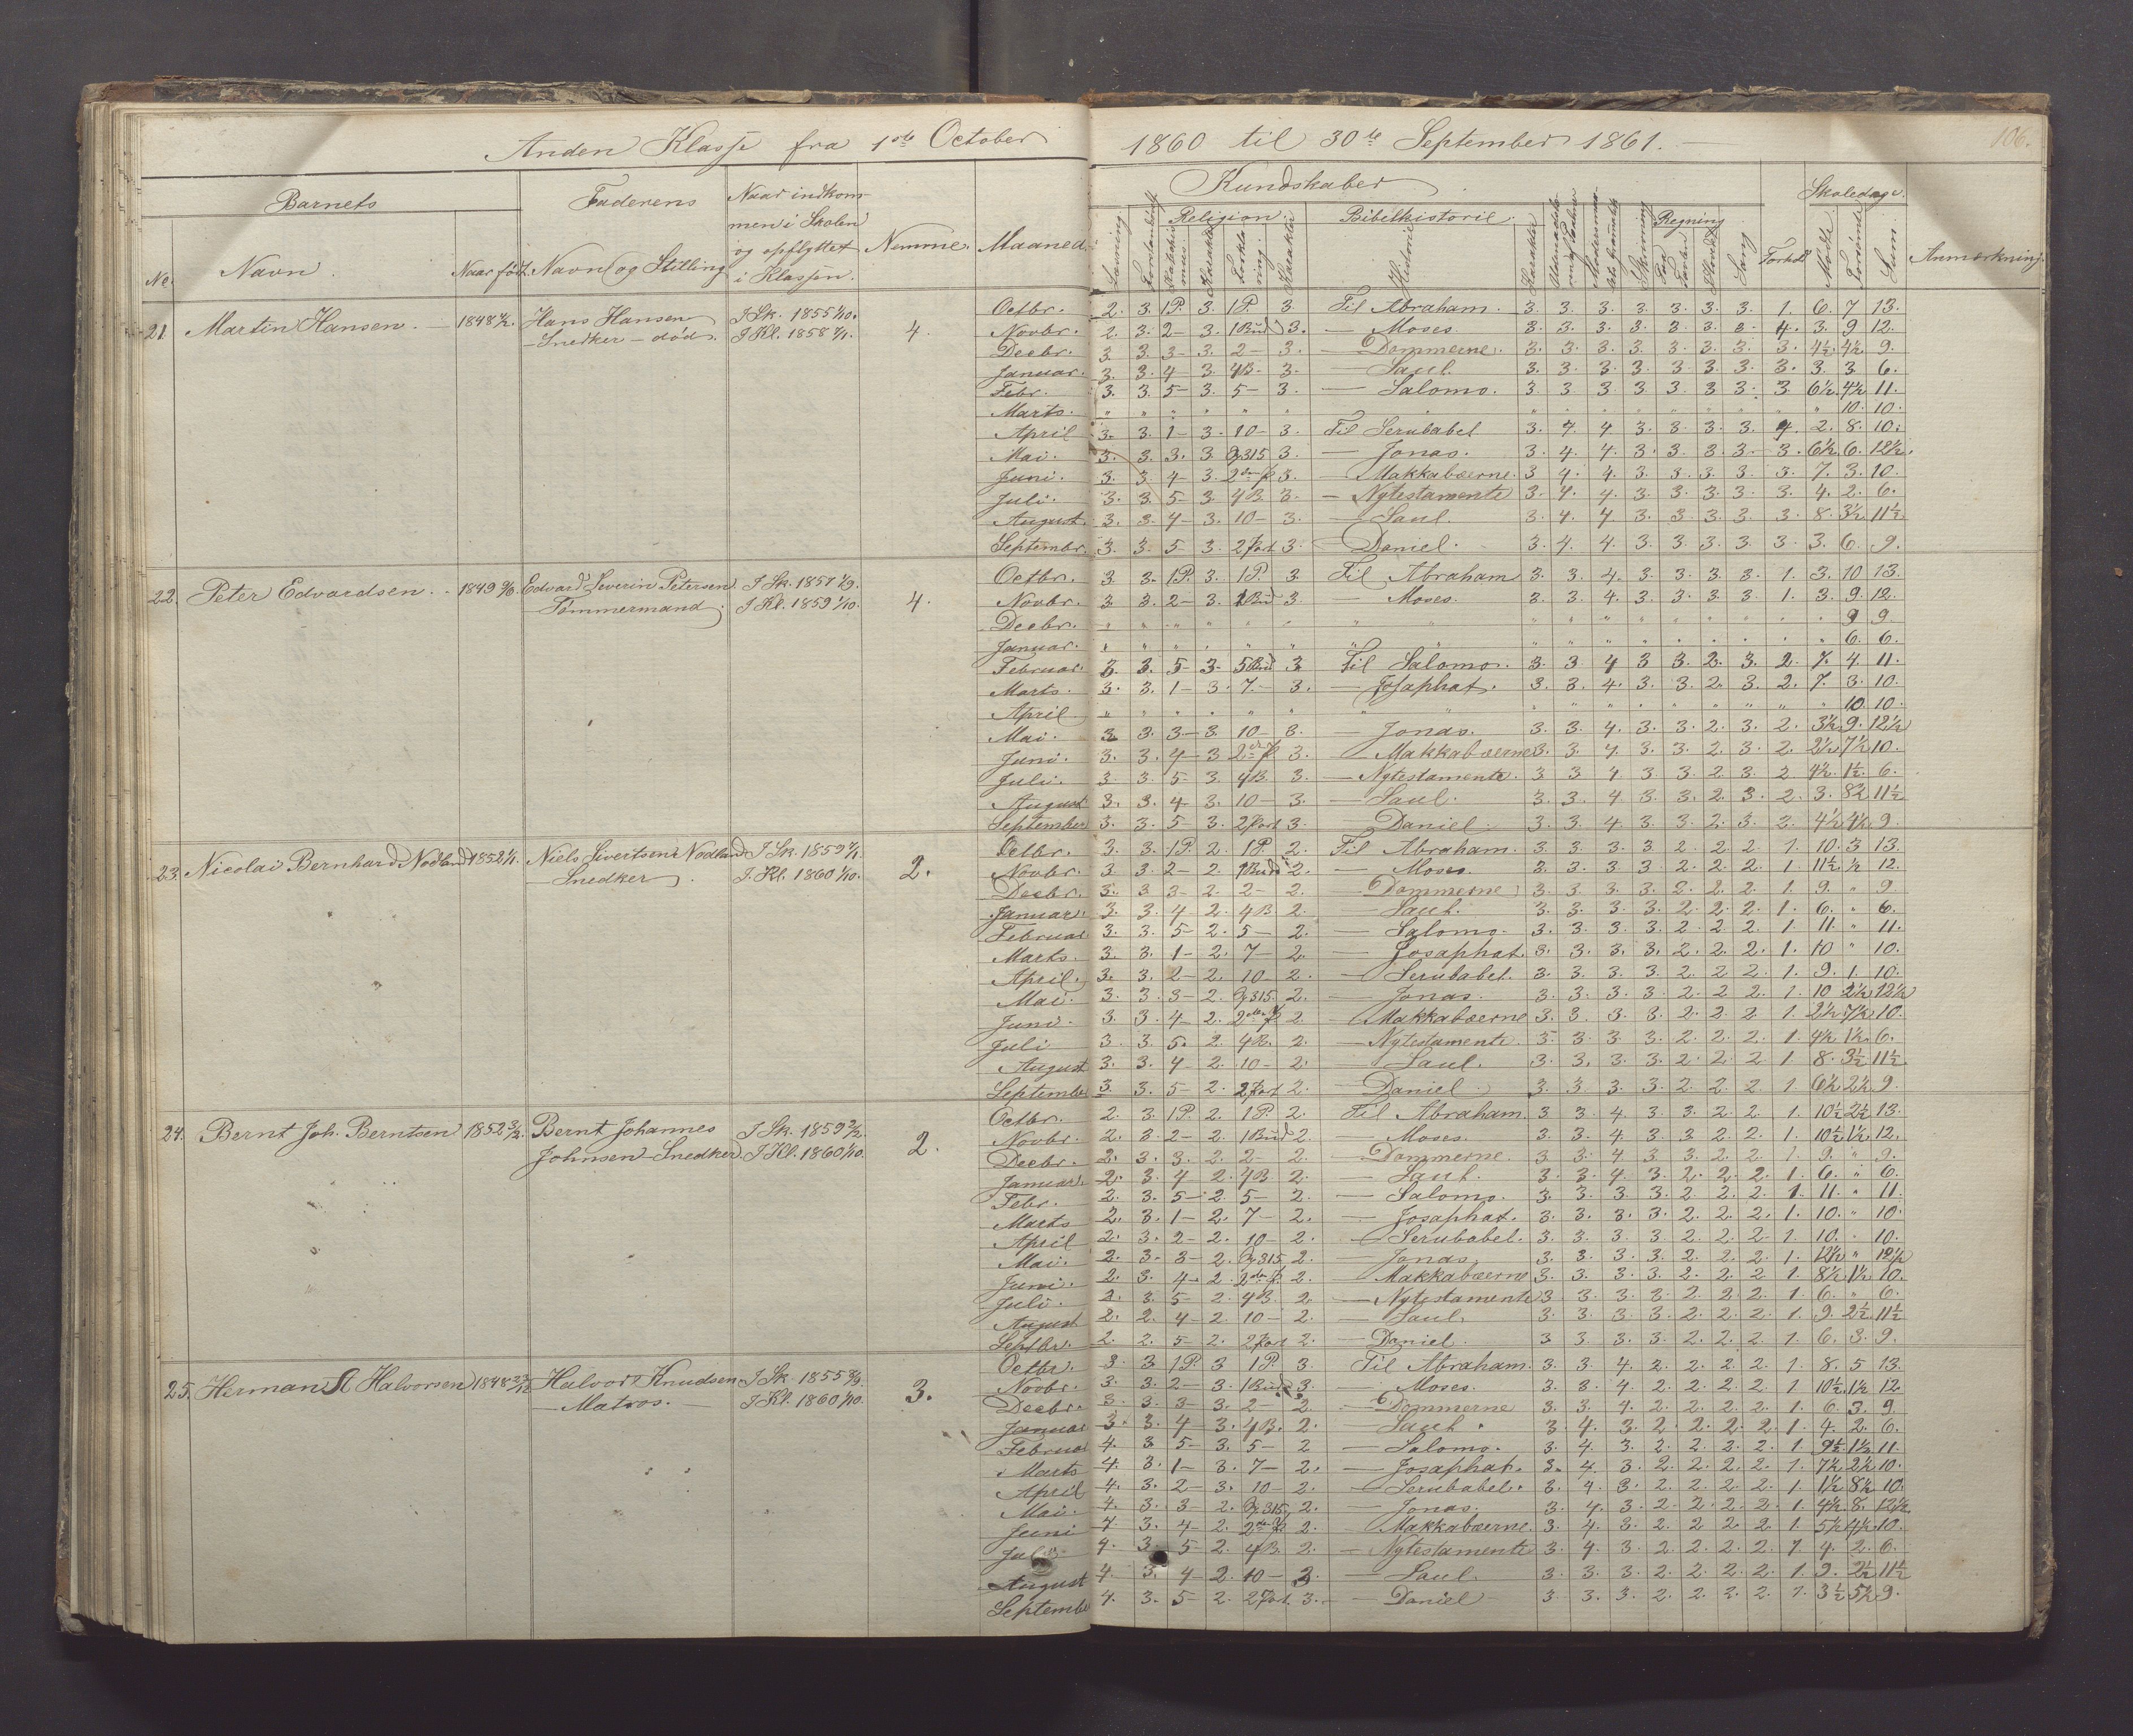 Anden Klasse fra 1ste October 1860 til 30te September 1861.
106.
Barnets Faderens Naar indkommen i Skolen og opflyttet i Klassen. Nemme. Maaned. Kundskaber Skoledage.
No. Navn. Naar født. Navn og Stilling Læsning Religion. Bibelhistorie. Historie Karakter Skrivning Regning Sang Forhold Mødte Forsømte Sum Anmærkning.
21. Martin Hansen. 1848 Hans Hansen I Sk. 1855 1/10. 4.
Snedker – død. I Kl. 1858
Octbr. 2. 3. 1 P. 3. 1 P. 3. Til Abraham. 3. 3. 3. 3. 3. 3. 3. 1. 6. 7 13.
Novbr. 2. 3. 2 – 3. 1 Bud 3. – Moses. 3. 3. 3. 3. 3. 3. 3. 4. 3. 9 12.
Decbr. 3. 3. 3 – 3. 2 – 3. – Dommerne. 3. 3. 3. 3. 3. 3. 3. 3. 4½ 4½ 9.
Januar. 3. 3. 4 – 3. 4 B. 3. – Saul. 3. 3. 3. 3. 3. 3. 3. 3. 3. 3 6.
Febr. 3. 3. 5 – 3. 5 – 3. – Salomo. 3. 3. 3. 3. 3. 3. 3. 3. 6½ 4½ 11.
Marts. " " " " " " " " " " " " " " " " 10. 10.
April 3. 3. 1 – 3. 10 – 3. Til Serubabel 3. 4. 4. 3. 3. 3. 3. 4. 2. 8. 10.
Mai. 3. 3. 3. 3. 315 3. – Jonas. 3. 4. 4. 3. 3. 3. 3. 3. 6½ 6. 12½.
Juni. 3. 3. 4 – 3. 2den 3. – Makkabæerne. 3 4. 4. 3. 3. 3. 3. 3. 7. 3. 10.
Juli. 3. 3. 5 – 3. 4 B. 3. – Nytestamente 3. 4. 4. 3. 3. 3. 3. 3. 4. 2. 6.
August. 3. 3. 4 – 3. 10 – 3. – Saul. 3. 4. 4. 3. 3. 3. 3. 3. 8. 3½ 11½
Septembr. 3. 3. 5 – 3. 2 Part 3. – Daniel. 3. 4. 4. 3. 3. 3. 3. 3. 3. 6. 9.
22. Peter Edvardsen. 1849 Edvard Severin Petersen I Sk. 1857 4.
Tømmermand. I Kl. 1859 1/10.
Octbr. 3. 3. 1 P. 3. 1 P. 3. Til Abraham 3. 3. 4. 3. 3. 3. 3. 1. 3. 10 13.
Novbr. 3. 3. 2 – 3. 1 Bud 3. – Moses. 3. 3. 4. 3. 3. 3. 3 1. 3. 9. 12.
Decbr. " " " " " " " " " " " " " " " " 9 9.
Januar. " " " " " " " " " " " " " " " " 6. 6.
Februar. 3. 3. 5 – 3. 5 Bud 3. Til Salomo. 3. 3 4 3 3. 2. 3. 2. 7. 4. 11.
Marts. 3. 3. 1 – 3. 7. – 3. – Josaphat. 3. 3. 4. 3. 3. 2. 3. 2. 7. 3. 10.
April " " " " " " " " " " " " " " " " 10. 10.
Mai. 3. 3. 3 – 3. 10 – 3. – Jonas. 3. 3. 4. 3. 3. 2. 3. 2. 3½ 9. 12½
Juni. 3. 3. 4 – 3 2den 3. – Makkabæerne 3. 3 4. 3. 3. 2. 3. 2. 2½ 7½ 10.
Juli. 3 3. 5 – 3. 4 B. 3. – Nytestamente. 3 3 4. 3. 3. 2. 3. 2 4½ 1½ 6.
August 3. 3. 4 – 3. 10 – 3. – Saul. 3. 3. 4 3. 3. 2. 3. 2. 3. 8½ 11½
September 3. 3. 5 – 3. 2 Part 3. – Daniel. 3. 3. 4. 3. 3 2. 3. 2. 4½ 4½ 9.
23. Nicolai Bernhard Nødland 1852 Niels Sivertsen Nødland I Sk. 1859 2.
Snedker I Kl. 1860 1/10.
Octbr. 3. 3. 1 P. 2. 1 P. 2. Til Abraham. 3. 3. 3. 3. 2. 2. 2 1. 10. 3 13.
Novbr. 3 3. 2 – 2. 1 Bud 2. – Moses. 3. 3. 3. 3. 2. 2. 2. 1. 11½ ½ 12.
Decbr. 3. 3 3 – 2. 2 – 2. – Dommerne 3. 3. 3. 3. 2. 2. 2. 1. 9. " 9
Januar. 3. 3. 4 – 2. 4 B 2. – Saul. 3. 3. 3. 3. 2. 2. 2. 1. 6. " 6.
Februar 3. 3. 5 – 2. 5 – 2. – Salomo. 3. 3. 3. 3. 2. 2. 2. 1. 11. " 11.
Marts. 3. 3. 1 – 2. 7 – 2. – Josaphat. 3. 3. 3. 3. 2. 2. 2. 1. 10 " 10.
April. 3. 3. 2 – 2. 10 – 2. – Serubabel. 3. 3. 3. 3. 2. 2. 2. 1. 9. 1. 10.
Mai. 3. 3. 3 – 2. 315. 2. – Jonas. 3. 3. 3. 3. 2. 2. 2. 1. 10 2½ 12½
Juni. 3. 3. 4 – 2. 2den 2. – Makkabæerne 3. 3. 3. 3. 2. 2. 2. 1. 2½ 7½ 10.
Juli 3. 3. 5. 2. 4 B. 2. – Nytestamente. 3. 3. 3. 3. 2. 2. 2. 1. 4½ 1½ 6.
August 3. 3. 4 – 2. 10 – 2. – Saul. 3. 3. 3. 3. 2. 2. 2 1. 8. 3½ 11½
September 3. 3. 5 – 2. 2 Part 2. – Daniel. 3. 3. 3. 3. 2. 2. 2. 1. 6½ 2½ 9.
24. Bernt Joh. Berntsen 1852 Bernt Johannes I Sk. 1859 2.
Johnsen – Snedker. I Kl. 1860 1/10.
Octbr. 2. 3. 1 P. 2. 1 P. 2. Til Abraham. 3. 3. 4. 3. 3. 2. 2. 1. 10½ 2½ 13.
Novbr. 2. 3. 2 – 2. 1 Bud 2. – Moses. 3. 3. 4. 3. 3. 2. 2. 1. 10½ 1½ 12.
Decbr. 2. 3. 3. 2. 2 – 2. – Dommerne. 3. 3. 4. 3. 3. 2. 2. 1. 9. " 9.
Januar. 2. 3. 4 – 2. 4 B 2. – Saul. 3. 3. 4. 3. 2. 2. 2. 1. 6. " 6.
Febr. 2. 3. 5 – 2. 5 – 2. – Salomo. 3. 3. 3. 3. 2. 2. 2. 1. 11. " 11.
Marts 2. 3. 1 – 2. 7 – 2. – Josaphat. 3. 3. 3. 3. 2. 2. 2. 1. 10. " 10.
April 2. 3. 2 – 2. 10 – 2. – Serubabel. 3. 3. 3. 3. 2. 2. 2. 1. 10. " 10.
Mai. 2. 3. 3 – 2. 315 2. – Jonas. 3. 3. 3. 3. 2. 2. 2. 1. 12½ " 12½
Juni. 2. 3. 4 – 2. 2den 2. – Makkabæerne 3. 3. 3. 3. 2. 2. 2 1. 8½ 1½ 10.
Juli. 2. 3. 5 – 2. 4 B. 2. – Nytestamente 3 3. 3. 3. 2. 2. 2. 1. 6. " 6.
August 2. 2. 4 – 2. 10 – 2. – Saul. 3. 3. 3. 3. 2. 2. 2. 1. 9. 2½ 11½
Septbr. 2. 2. 5 – 2. 2 Part 2. – Daniel. 3 3 3. 3. 2. 2. 2. 1. 6. 3. 9.
25. Herman A Halvorsen 1848 Halvor Knudsen I Sk. 1855 3.
– Matros. – I Kl. 1860 1/10.
Octbr. 3. 3 1 P. 3 1 P. 3. Til Abraham. 3. 3. 4. 2. 2. 2. 2. 1. 8. 5 13.
Novbr. 3. 3. 2 – 3. 1 Bud 3. – Moses. 3. 3. 4. 2. 2. 2. 2. 1 10½ 1½ 12
Decbr. 3. 3. 3 – 3. 2 – 2. – Dommerne 3. 3. 4. 2. 2. 2. 2. 1. 6 3. 9.
Januar 3. 3. 4 – 3. 4 B. 2. – Saul. 3. 4. 3. 2. 2. 2. 2 1. 4. 2. 6.
Februar 4. 3 5 – 3. 5 – 2 – Salomo. 3. 4. 3. 2. 2. 2. 2. 1. 9½ 1½ 11.
Marts 4. 3. 1 – 3. 7 – 2. – Josaphat. 3. 4. 3. 2. 2. 2. 2. 1. 7½ 2½ 10.
April 4. 3. 2 – 3. 10 – 2. – Serubabel. 3. 4. 3. 2. 2. 2. 2. 1. 1½ 8½ 10.
Mai. 4. 3. 3 – 2. 315 2. – Jonas. 3. 4. 3. 2. 2. 2. 2. 1. 4½ 8. 12½
Juni 4. 3. 4 – 2. 2den 2. – Makkabæerne. 3. 4. 3. 2. 2. 2. 2 1. 5½ 4½ 10.
Juli 4. 3. 5 – 2. 4 B. 2. – Nytestamente 3. 4. 3. 2. 2. 2. 2. 1 4. 2. 6.
August 4. 3. 4 – 2. 10 – 3. – Saul. 3. 3. 3. 2. 2. 2. 2. 1. 9. 2½ 11½
September 4. 3. 5 – 2. 2 Part. 3. – Daniel 3. 3. 3. 2. 2. 2. 2. 1. 3½ 5½ 9.